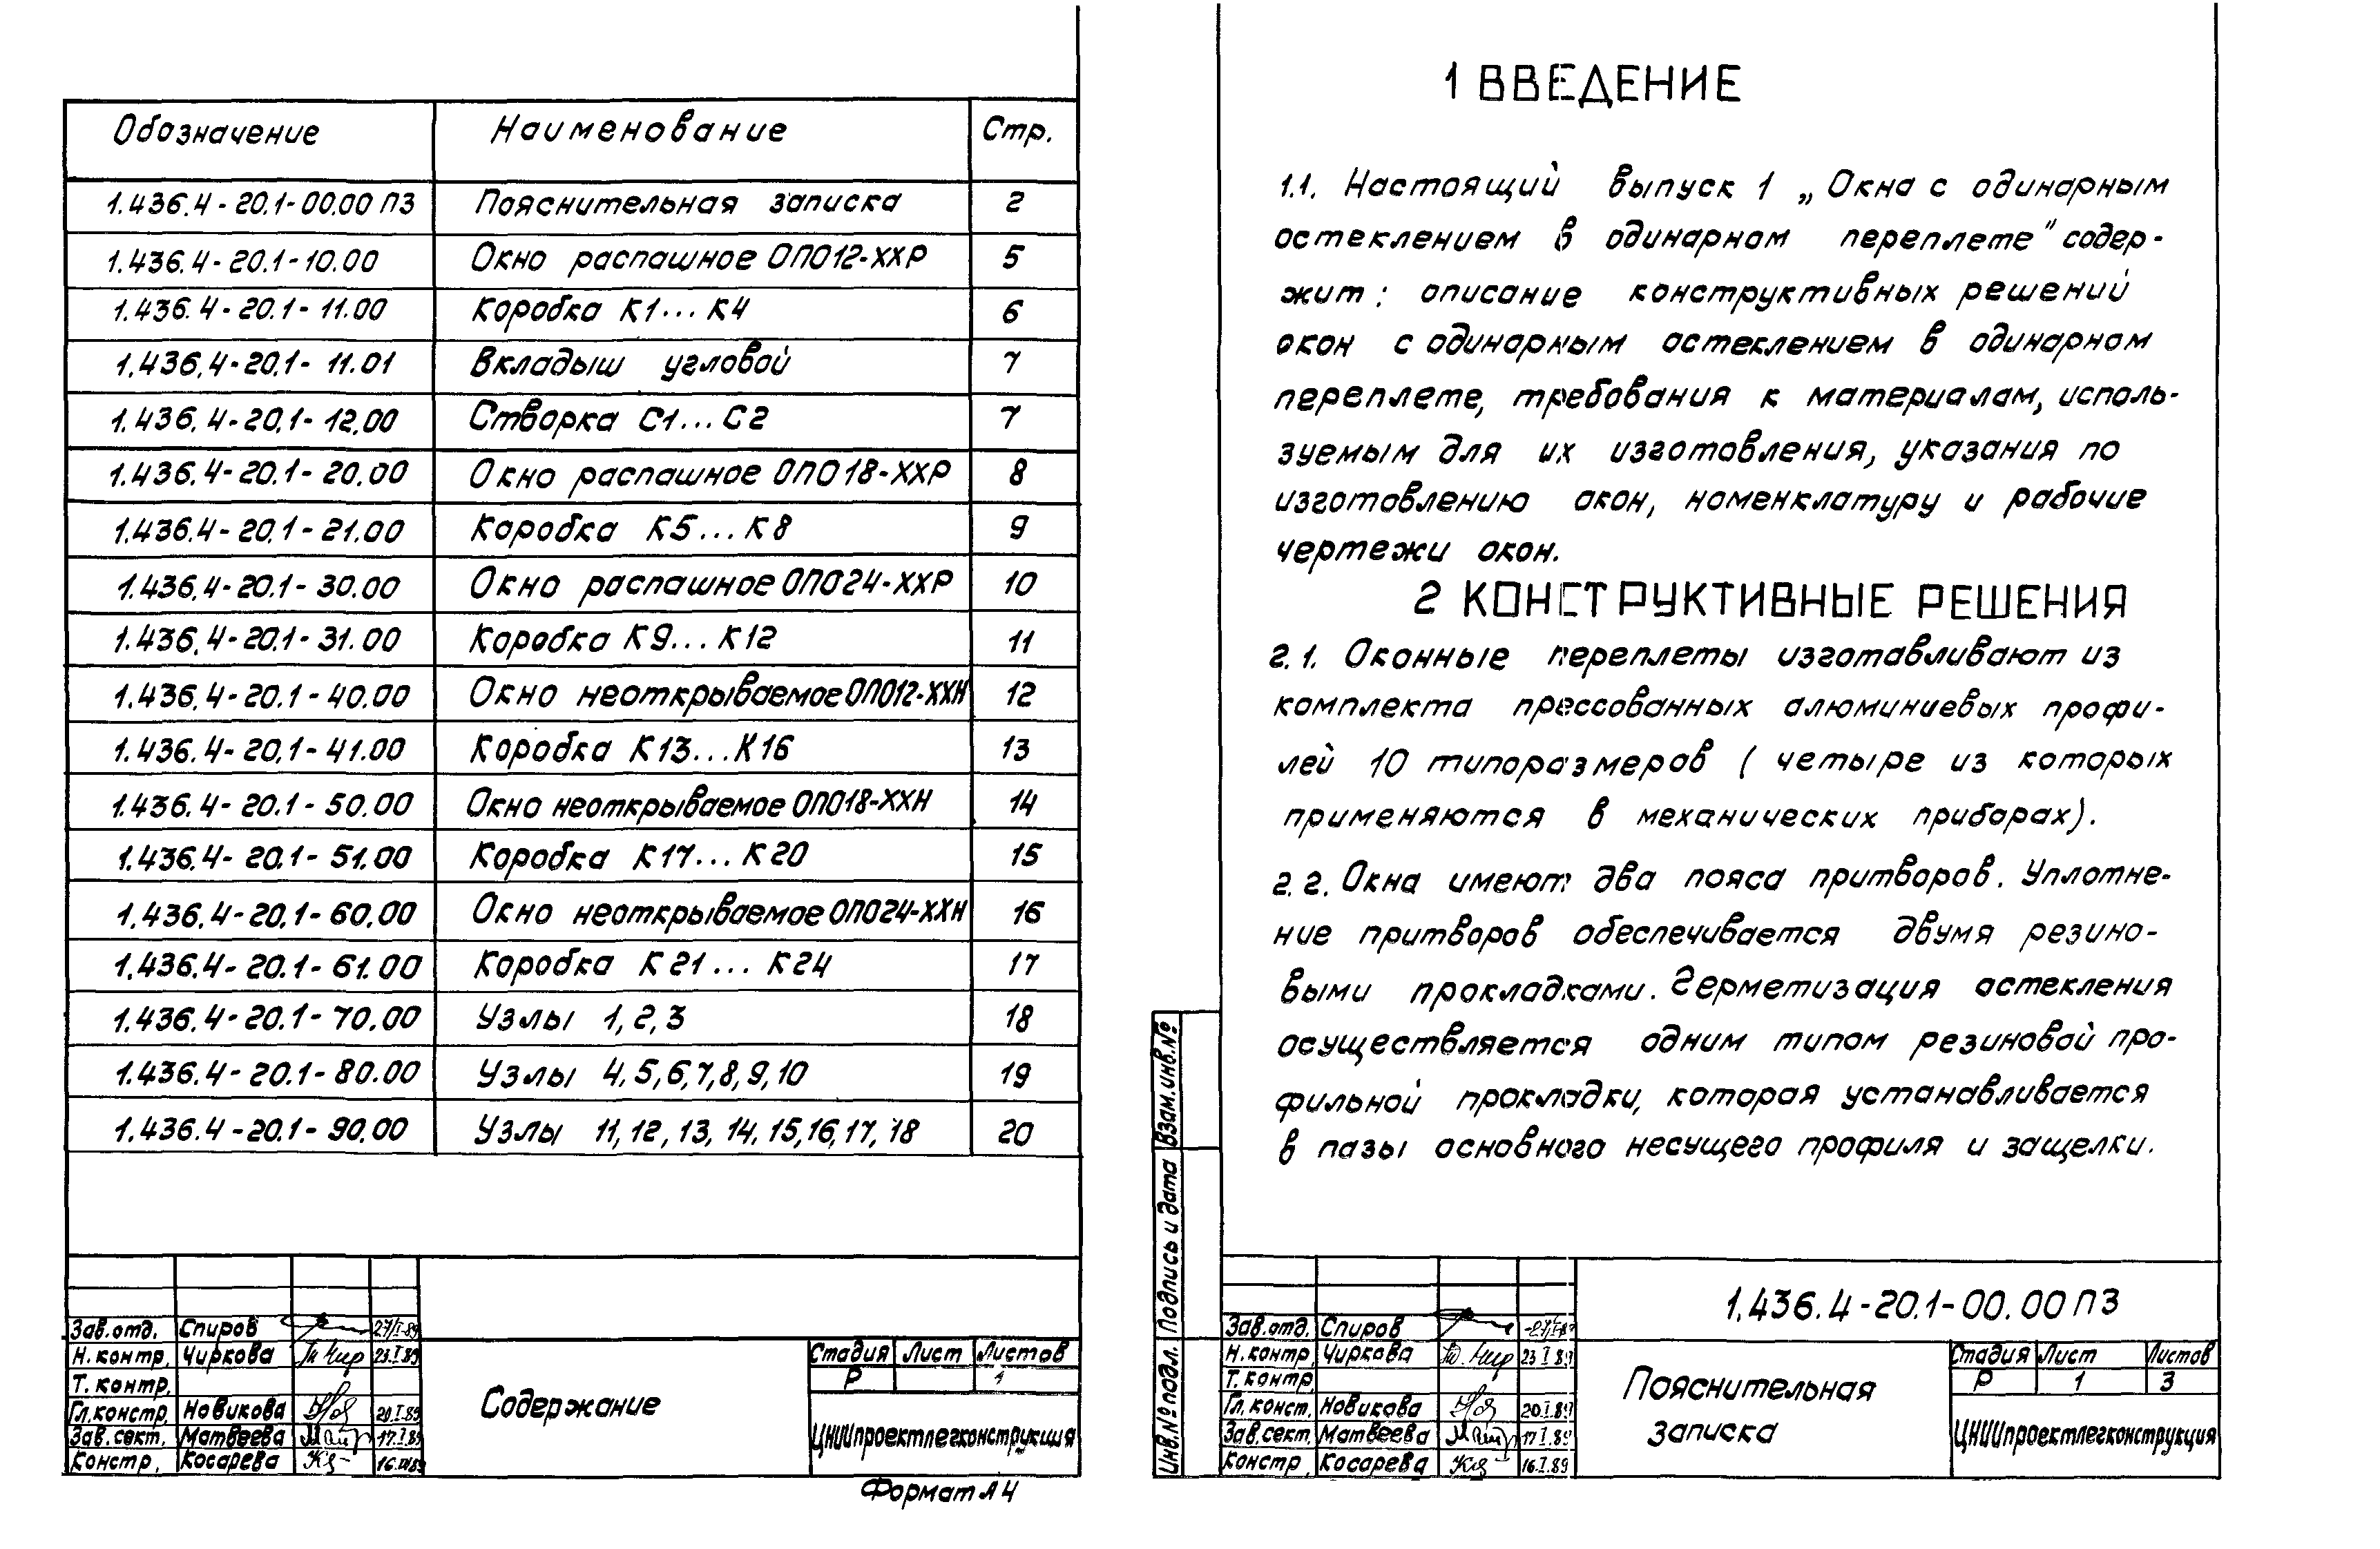 Обозначение Наименование Стр.
1.436.4-20.1-00.00 ПЗ Пояснительная записка 2
1.436.4-20.1-10.00 Окно распашное ОПО12-ХХР 5
1.436.4-20.1-11.00 Коробка К1...К4 6
1.436.4-20.1-11.01 Вкладыш угловой 7
1.436.4-20.1-12.00 Створка С1...С2 7
1.436.4-20.1-20.00 Окно распашное ОПО18-ХХР 8
1.436.4-20.1-21.00 Коробка К5...К8 9
1.436.4-20.1-30.00 Окно распашное ОПО24-ХХР 10
1.436.4-20.1-31.00 Коробка К9...К12 11
1.436.4-20.1-40.00 Окно неоткрываемое ОПО12-ХХН 12
1.436.4-20.1-41.00 Коробка К13...К16 13
1.436.4-20.1-50.00 Окно неоткрываемое ОПО18-ХХН 14
1.436.4-20.1-51.00 Коробка К17...К20 15
1.436.4-20.1-60.00 Окно неоткрываемое ОПО24-ХХН 16
1.436.4-20.1-61.00 Коробка К21...К24 17
1.436.4-20.1-70.00 Узлы 1, 2, 3 18
1.436.4-20.1-80.00 Узлы 4, 5, 6, 7, 8, 9, 10 19
1.436.4-20.1-90.00 Узлы 11, 12, 13, 14, 15, 16, 17, 18 20
Зав.отд. Спиров 27/I-89
Н.контр. Чиркова 23.I.89
Т.контр.
Гл.констр. Новикова 20.I.89
Зав.сект. Матвеева 17.I.89
Констр. Косарева
Содержание
Стадия Лист Листов
Р 1
ЦНИИпроектлегконструкция
Формат А4
1 ВВЕДЕНИЕ
1.1. Настоящий выпуск 1 „Окна с одинарным
остеклением в одинарном переплете" содер-
жит: описание конструктивных решений
окон с одинарным остеклением в одинарном
переплете, требования к материалам, исполь-
зуемым для их изготовления, указания по
изготовлению окон, номенклатуру и рабочие
чертежи окон.
2 КОНСТРУКТИВНЫЕ РЕШЕНИЯ
2.1. Оконные переплеты изготавливают из
комплекта прессованных алюминиевых профи-
лей 10 типоразмеров (четыре из которых
применяются в механических приборах).
2.2. Окна имеют два пояса притворов. Уплотне-
ние притворов обеспечивается двумя резино-
выми прокладками. Герметизация остекления
осуществляется одним типом резиновой про-
фильной прокладки, которая устанавливается
в пазы основного несущего профиля и защелки.
Взам.инв.№
Подпись и дата
Инв.№ подл.
Зав.отд. Спиров
Н.контр. Чиркова 23.I.89
Т.контр.
Гл.конст. Новикова 20.I.89
Зав.сект. Матвеева 17.I.89
Констр. Косарева 16.I.89
1.436.4-20.1-00.00 ПЗ
Пояснительная
записка
Стадия Лист Листов
Р 1 3
ЦНИИпроектлегконструкция